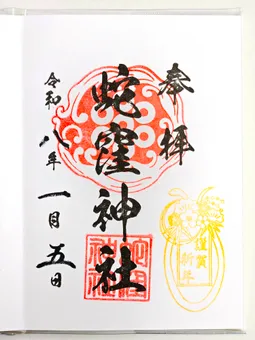 奉拝
蛇窪神社
令和八年一月五日
蛇窪神社
謹賀新年